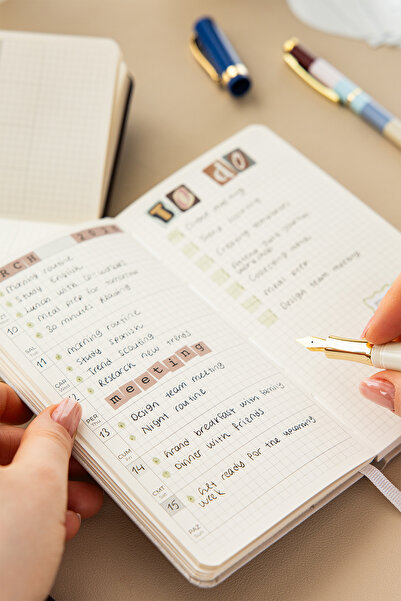 RCH 202
Morning routine
Study English
Lunch with co-workers
10 Meal prep for tomorrow
30 minutes reading
SAL
11 morning routine
Study spanish
Trend scouting
ÇAR Research new trends
12
meeting
PER
13 Design team meeting
Night routine
CUM
14 Grand breakfast with family
Dinner with friends
CMT
15 Get ready for the upcoming
week
PAZ
To do
Study
Creating templates
meal prep
Design team meeting